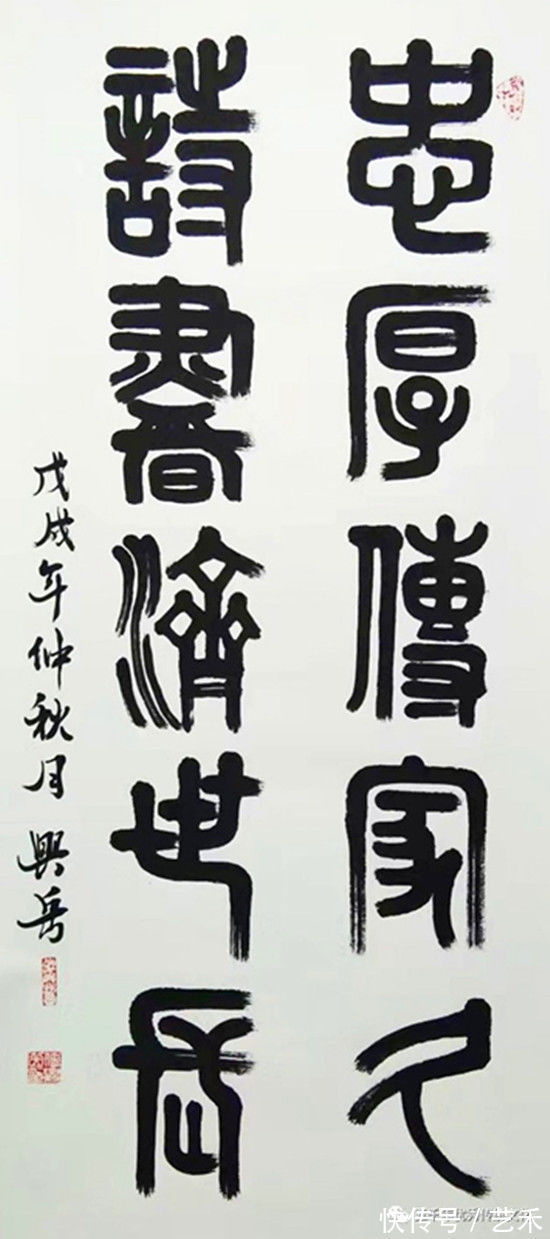 忠厚傳家久
詩書濟世長
戊戌年仲秋月興岳
快传号/艺禾